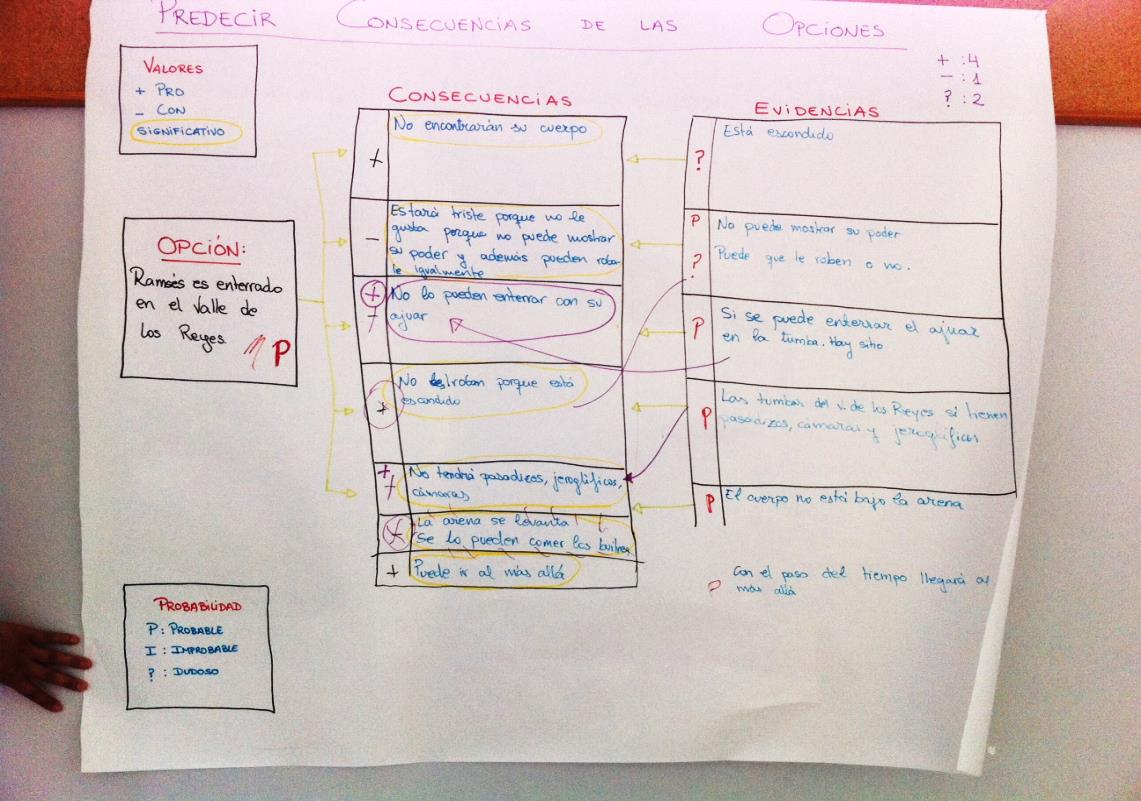 PREDECIR CONSECUENCIAS DE LAS OPCIONES
+ : 4
- : 1
? : 2
VALORES
+ PRO
- CON
SIGNIFICATIVO
OPCIÓN:
Ramsés es enterrado
en el Valle de
los Reyes.
P
PROBABILIDAD
P : PROBABLE
I : IMPROBABLE
? : DUDOSO
CONSECUENCIAS
+
No encontrarán su cuerpo
-
Estará triste porque no le
gusta porque no puede mostrar
su poder y además pueden roba-
le igualmente
+
-
No lo pueden enterrar con su
ajuar
+
No roban porque está
escondido
+
No tendrá pasadizos, jeroglíficos,
cámaras
La arena se levanta
Se lo pueden comer los buitres
+
Puede ir al más allá
EVIDENCIAS
?
Está escondido
P
No puede mostrar su poder
?
Puede que le roben o no.
P
Si se puede enterrar el ajuar
en la tumba. Hay sitio
P
Las tumbas del v. de los Reyes sí tienen
pasadizos, cámaras y jeroglíficos
P
El cuerpo no está bajo la arena
?
Con el paso del tiempo llegará al
más allá